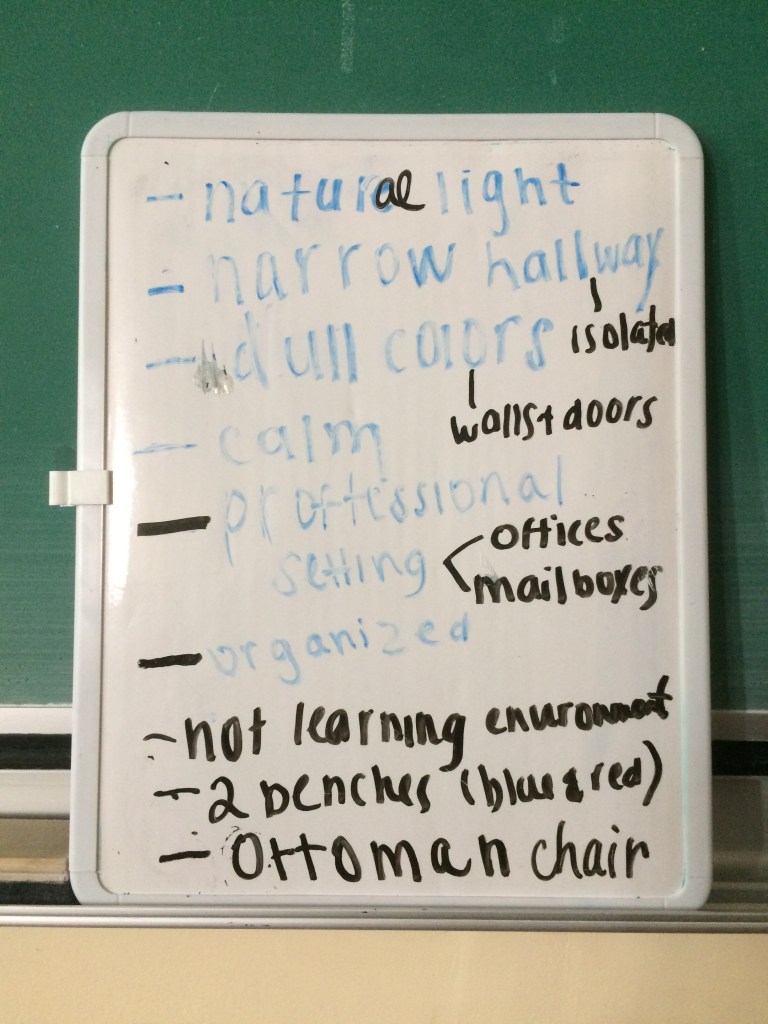 - natural light
- narrow hallway
isolated
- dull colors
walls + doors
- calm
- proffessional
setting
offices
mailboxes
- organized
- not learning enviroment
- 2 benches (blue & red)
- Ottoman chair